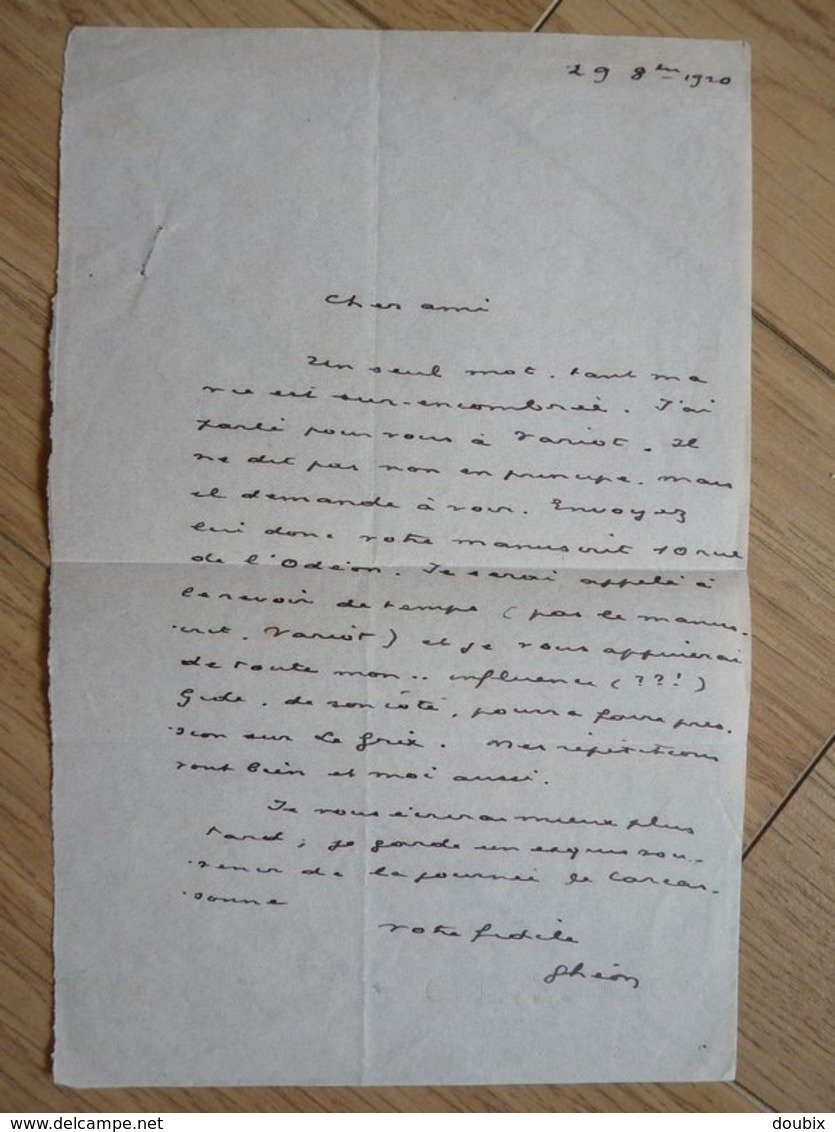 29 8bre 1920
Cher ami
Un seul mot, tant ma
vie est sur-encombrée. J'ai
parlé pour vous à Variot. Il
ne dit pas non en principe, mais
il demande à voir. Envoyez
lui donc votre manuscrit 10 rue
de l'Odéon. Je serai appelé à
le revoir de temps (pas le manus-
-crit, Variot) et je vous appuierai
de toute mon .. influence (??!)
Gide, de son côté, pourra faire pres-
-sion sur Le Grix. Mes répétitions
vont bien et moi aussi.
Je vous écrirai mieux plus
tard ; je garde un exquis sou-
-venir de la journée de Carcas-
-sonne
votre fidèle
Ghéon
www.delcampe.net
doubix